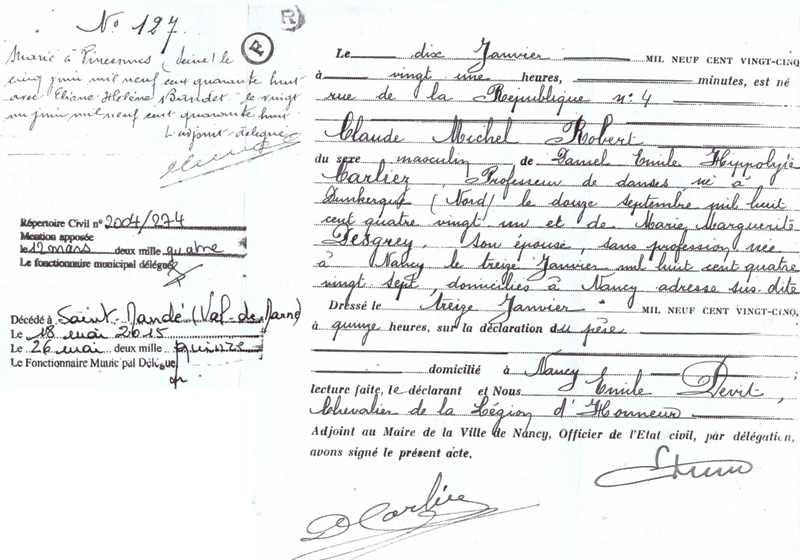 N° 127
F
R
Marié à Vincennes (Seine) le
cinq juin mil neuf cent quarante huit
avec Eliane Hélène Bandet le vingt
un juin mil neuf cent quarante huit
L'adjoint délégué
Répertoire Civil n° 2004/274
Mention apposée
le 12 mars deux mille quatre
Le fonctionnaire municipal délégué
Décédé à Saint-Mandé (Val-de-Marne)
Le 18 mai 2015
Le 26 mai deux mille quinze
Le Fonctionnaire Municipal Délégué,
Le dix Janvier MIL NEUF CENT VINGT-CINQ
à vingt une heures, minutes, est né
rue de la République n° 4
Claude Michel Robert
du sexe masculin de Daniel Emile Hippolyte
Carlier Professeur de danses né à
Dunkerque (Nord) le douze septembre mil huit
cent quatre vingt un et de Marie Marguerite
Desgrey, son épouse, sans profession née
à Nancy le treize Janvier mil huit cent quatre
vingt sept, domiciliés à Nancy adresse sus dite
Dressé le treize Janvier MIL NEUF CENT VINGT-CINQ,
à quinze heures, sur la déclaration du père
domicilié à Nancy
lecture faite, le déclarant et Nous Emile Devit,
Chevalier de la Légion d'Honneur
Adjoint au Maire de la Ville de Nancy, Officier de l'Etat civil, par délégation,
avons signé le présent acte.
D Carlier